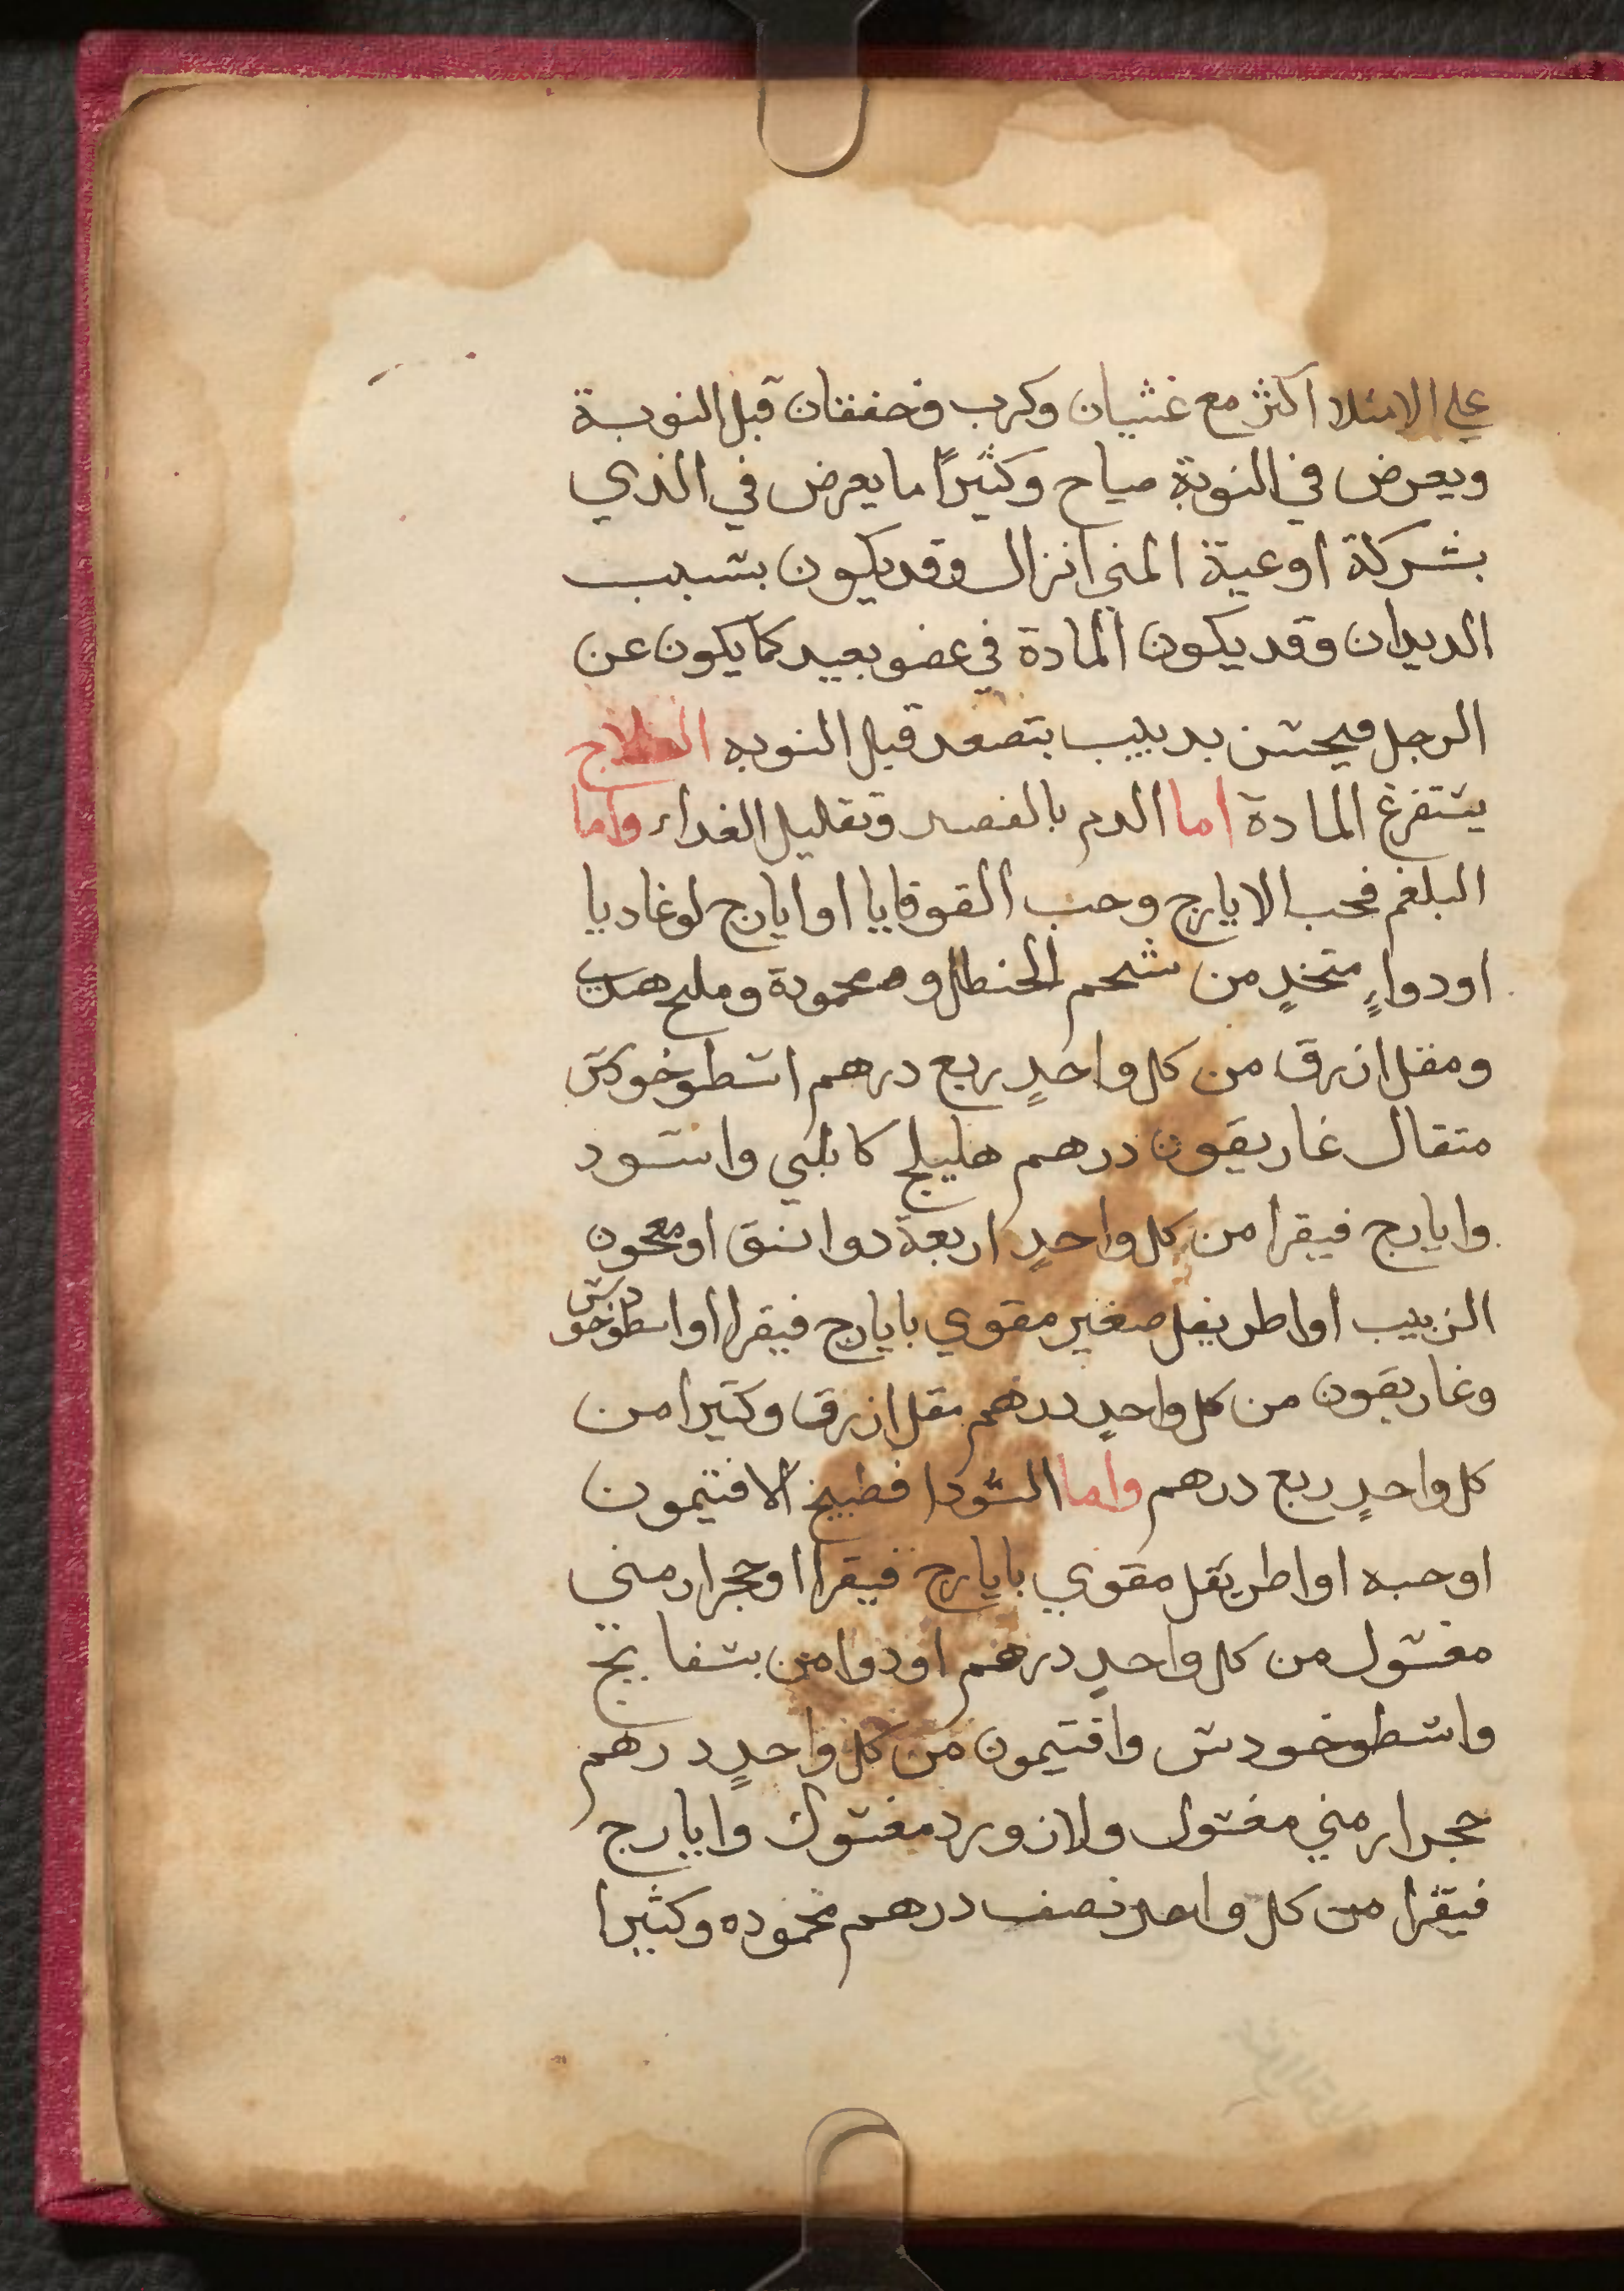 علي الامتلا اكثر مع غثيان وكرب وخفقان قبل النوبة
ويعرض في النوبة صياح وكثيرًا ما يعرض في الذي
بشركة اوعية المني انزال وقد يكون بسبب
الديدان وقد يكون المادة في عضو بعيد كما يكون عن
الرجل فيحس بدبيب يتصعد قبل النوبه العلاج
يستفرغ المادة اما الدم بالفصد وتقليل الغداء واما
البلغم فحب الايارج وحب القوقايا او ايارج لوغاديا
او دواءٍ متخدٍ من شحم الحنطل ومحمودة وملح هندي
ومقل ازرق من كل واحدٍ ربع درهم اسطوخودس
متقال غاريقون درهم هليلج كابلي واسود
وايارج فيقرا من كل واحدٍ اربعة دوانق او معجون
الزبيب او اطريفل صغير مقوي بايارج فيقرا او اسطوخودس
وغاريقون من كل واحدٍ درهم مقل ازرق وكتيرا من
كل واحدٍ ربع درهم واما السودا فطبيخ الافتيمون
او حبه او اطريفل مقوي بايارج فيقرا او حجر ارمني
مغسول من كل واحدٍ درهم او دوا من بسفايج
واسطوخودس وافتيمون من كل واحدٍ درهم
حجر ارمني مغسول ولازورد مغسول وايارج
فيقرا من كل واحد نصف درهم محموده وكثيرا